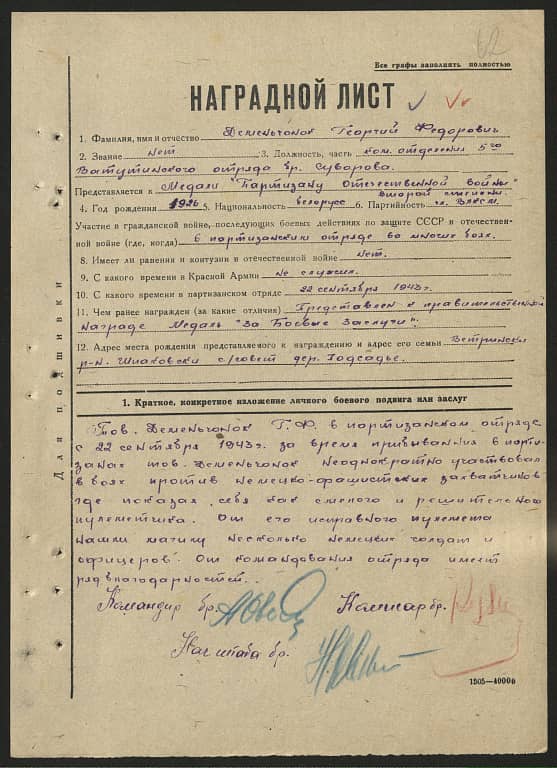 62
Все графы заполнять полностью
НАГРАДНОЙ ЛИСТ
1. Фамилия, имя и отчество Деменьчонок Георгий Федорович
2. Звание нет 3. Должность, часть ком. отделения 5го
Ватутинского отряда бр. Суворова.
Представляется к Медали "Партизану отечественной войны"
второй степени
4. Год рождения 1926 5. Национальность белорус 6. Партийность чл. ВЛКСМ.
Участие в гражданской войне, последующих боевых действиях по защите СССР и отечествен-
ной войне (где, когда) в партизанском отряде во многих боях.
8. Имеет ли ранения и контузии в отечественной войне нет.
9. С какого времени в Красной Армии не служил.
10. С какого времени в партизанском отряде 22 сентября 1943 г.
11. Чем ранее награжден (за какие отличия) Представлен к правительственной
награде Медаль "За Боевые Заслуги".
12. Адрес места рождения представляемого к награждению и адрес его семьи Ветринский
р-н. Шпаковски с/совет дер. Годсадье.
Для подшивки
1. Краткое, конкретное изложение личного боевого подвига или заслуг
Тов. Деменьчонок Г.Ф. в партизанском отряде
с 22 сентября 1943 г. за время прибывания в парти-
занах тов. Деменьчонок неоднократно участвовал
в боях против немецко-фашистских захватчиков
где показал себя как смелого и решительного
пулеметчика. От его исправного пулемета
нашли магилу несколько немецких солдат и
офицеров. От командования отряда имеет
ряд благодарностей.
Командир бр. Комиссар бр.
Нач штаба бр.
1505—40000